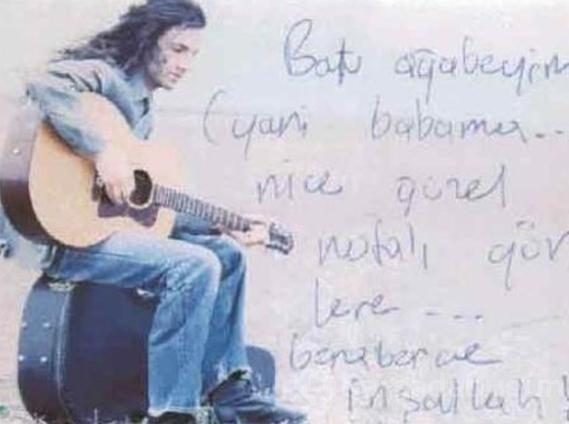 Batu ağabeyim
(yani babama...
nice güzel
notalı gün
lere ...
beraberce
inşallah!